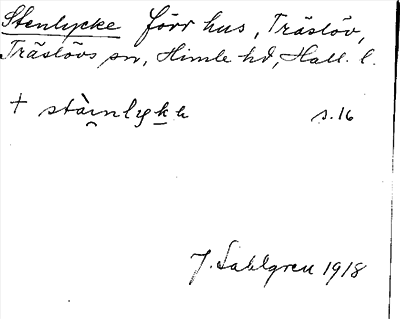 Stenlycke förr hus, Träslöv,
Träslövs sn, Himle hd, Hall. l.
+ stàinlykk s.16
J. Sahlgren 1918